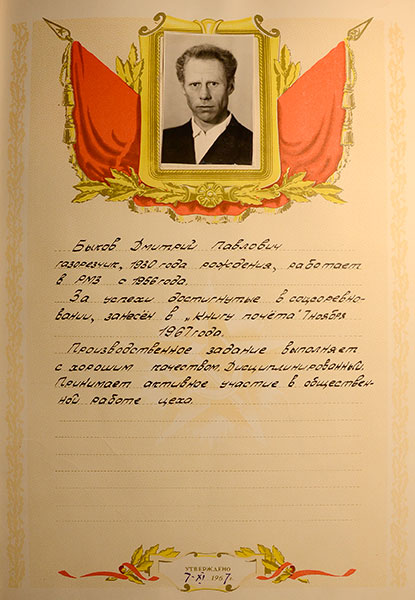 Быков Дмитрий Павлович
газорезчик, 1930 года рождения, работает
в РМЗ с 1956 года.
За успехи достигнутые в соцсоревно-
вании, занесён в „Книгу почёта" 7 ноября
1967 года.
Производственное задание выполняет
с хорошим качеством. Дисциплинированный.
Принимает активное участие в обществен-
ной работе цеха.
УТВЕРЖДЕНО
7-XI 1967г.